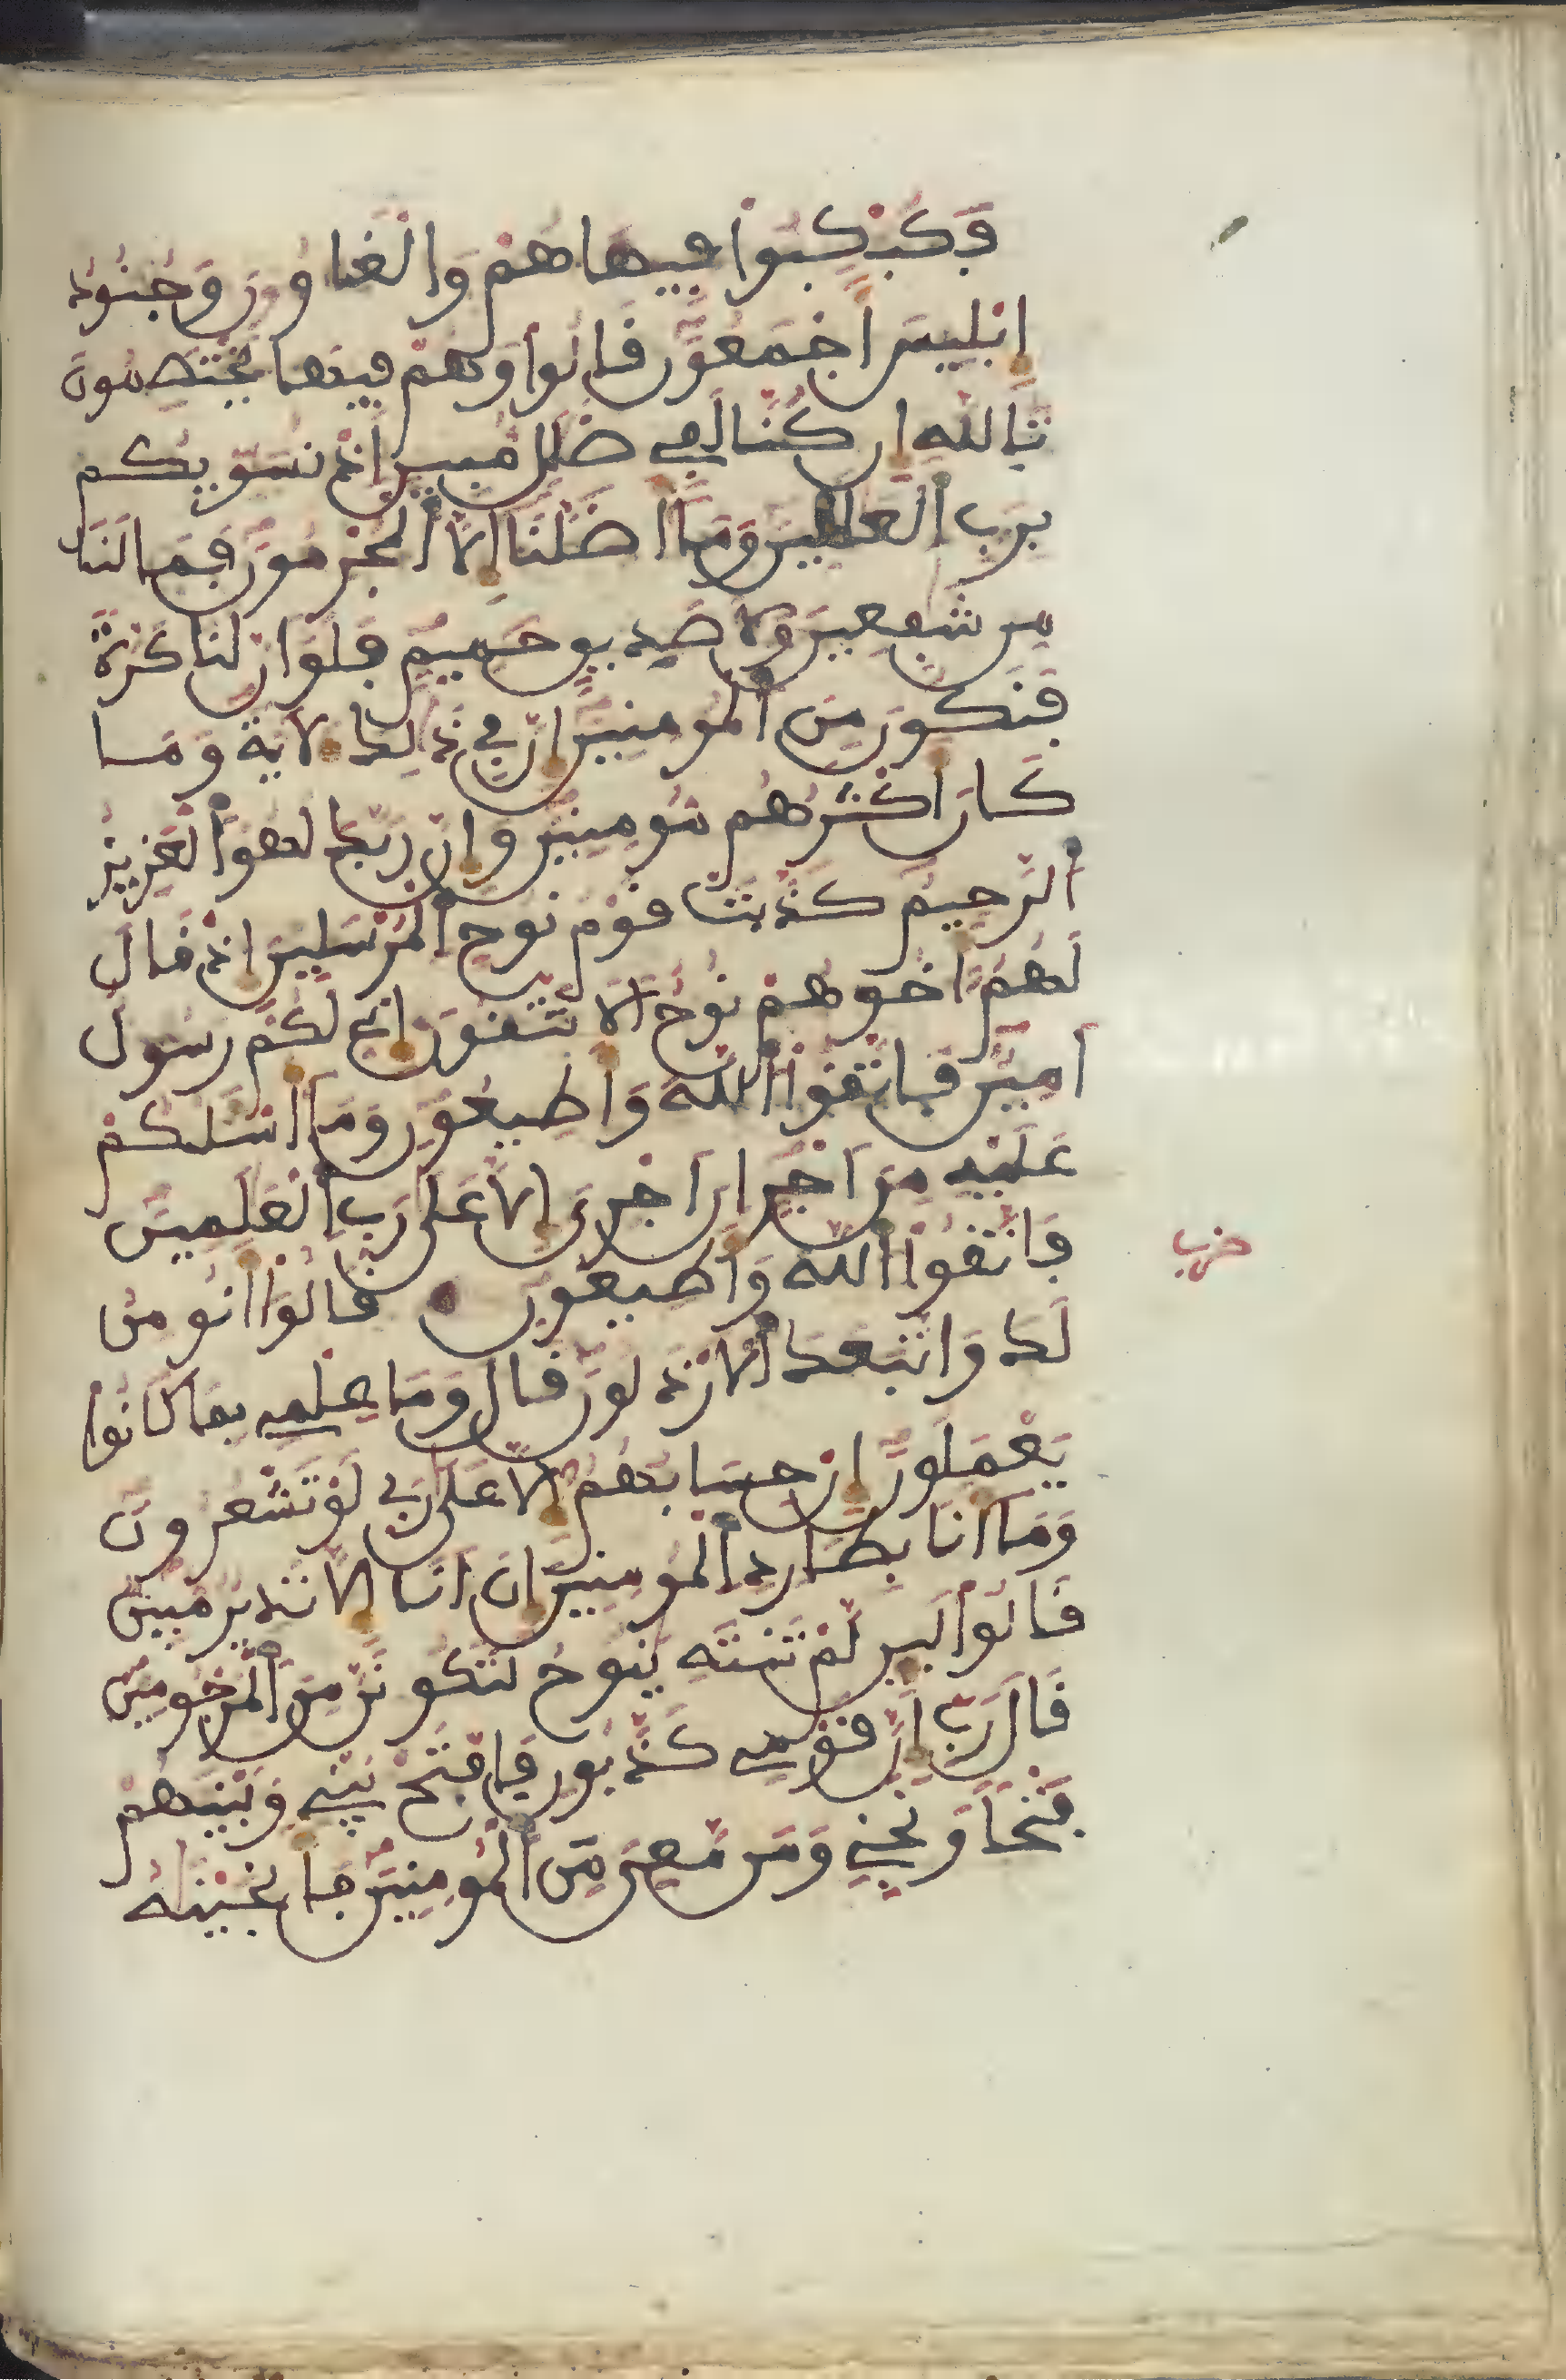 فَكُبْكِبُوا فِيهَا هُمْ وَالْغَاوُۥنَ وَجُنُودُ
إِبْلِيسَ أَجْمَعُونَ قَالُوا وَهُمْ فِيهَا يَخْتَصِمُونَ
تَاللَّهِ إِن كُنَّا لَفِي ضَلَٰلٍ مُّبِينٍ إِذْ نُسَوِّيكُم
بِرَبِّ الْعَٰلَمِينَ وَمَا أَضَلَّنَا إِلَّا الْمُجْرِمُونَ فَمَا لَنَا
مِن شَٰفِعِينَ وَلَا صَدِيقٍ حَمِيمٍ فَلَوْ أَنَّ لَنَا كَرَّةً
فَنَكُونَ مِنَ الْمُومِنِينَ إِنَّ فِي ذَٰلِكَ لَأيَةً وَمَا
كَانَ أَكْثَرُهُم مُّومِنِينَ وَإِنَّ رَبَّكَ لَهُوَ الْعَزِيزُ
الرَّحِيمُ كَذَّبَتْ قَوْمُ نُوحٍ الْمُرْسَلِينَ إِذْ قَالَ
لَهُمْ أَخُوهُمْ نُوحٌ أَلَا تَتَّقُونَ إِنِّي لَكُمْ رَسُولٌ
أَمِينٌ فَاتَّقُوا اللَّهَ وَأَطِيعُونِ وَمَا أَسْـَٔلُكُمْ
عَلَيْهِ مِنْ أَجْرٍ إِنْ أَجْرِيَ إِلَّا عَلَىٰ رَبِّ الْعَٰلَمِينَ
فَاتَّقُوا اللَّهَ وَأَطِيعُونِ قَالُوا أَنُومِنُ
لَكَ وَاتَّبَعَكَ الْأَرْذَلُونَ قَالَ وَمَا عِلْمِي بِمَا كَانُوا
يَعْمَلُونَ إِنْ حِسَابُهُمْ إِلَّا عَلَىٰ رَبِّي لَوْ تَشْعُرُونَ
وَمَا أَنَا بِطَارِدِ الْمُومِنِينَ إِنْ أَنَا إِلَّا نَذِيرٌ مُّبِينٌ
قَالُوا لَئِن لَّمْ تَنتَهِ يَٰنُوحُ لَتَكُونَنَّ مِنَ الْمَرْجُومِينَ
قَالَ رَبِّ إِنَّ قَوْمِي كَذَّبُونِ فَافْتَحْ بَيْنِي وَبَيْنَهُمْ
فَتْحًا وَنَجِّنِي وَمَن مَّعِي مِنَ الْمُومِنِينَ فَأَنجَيْنَٰهُ
حزب